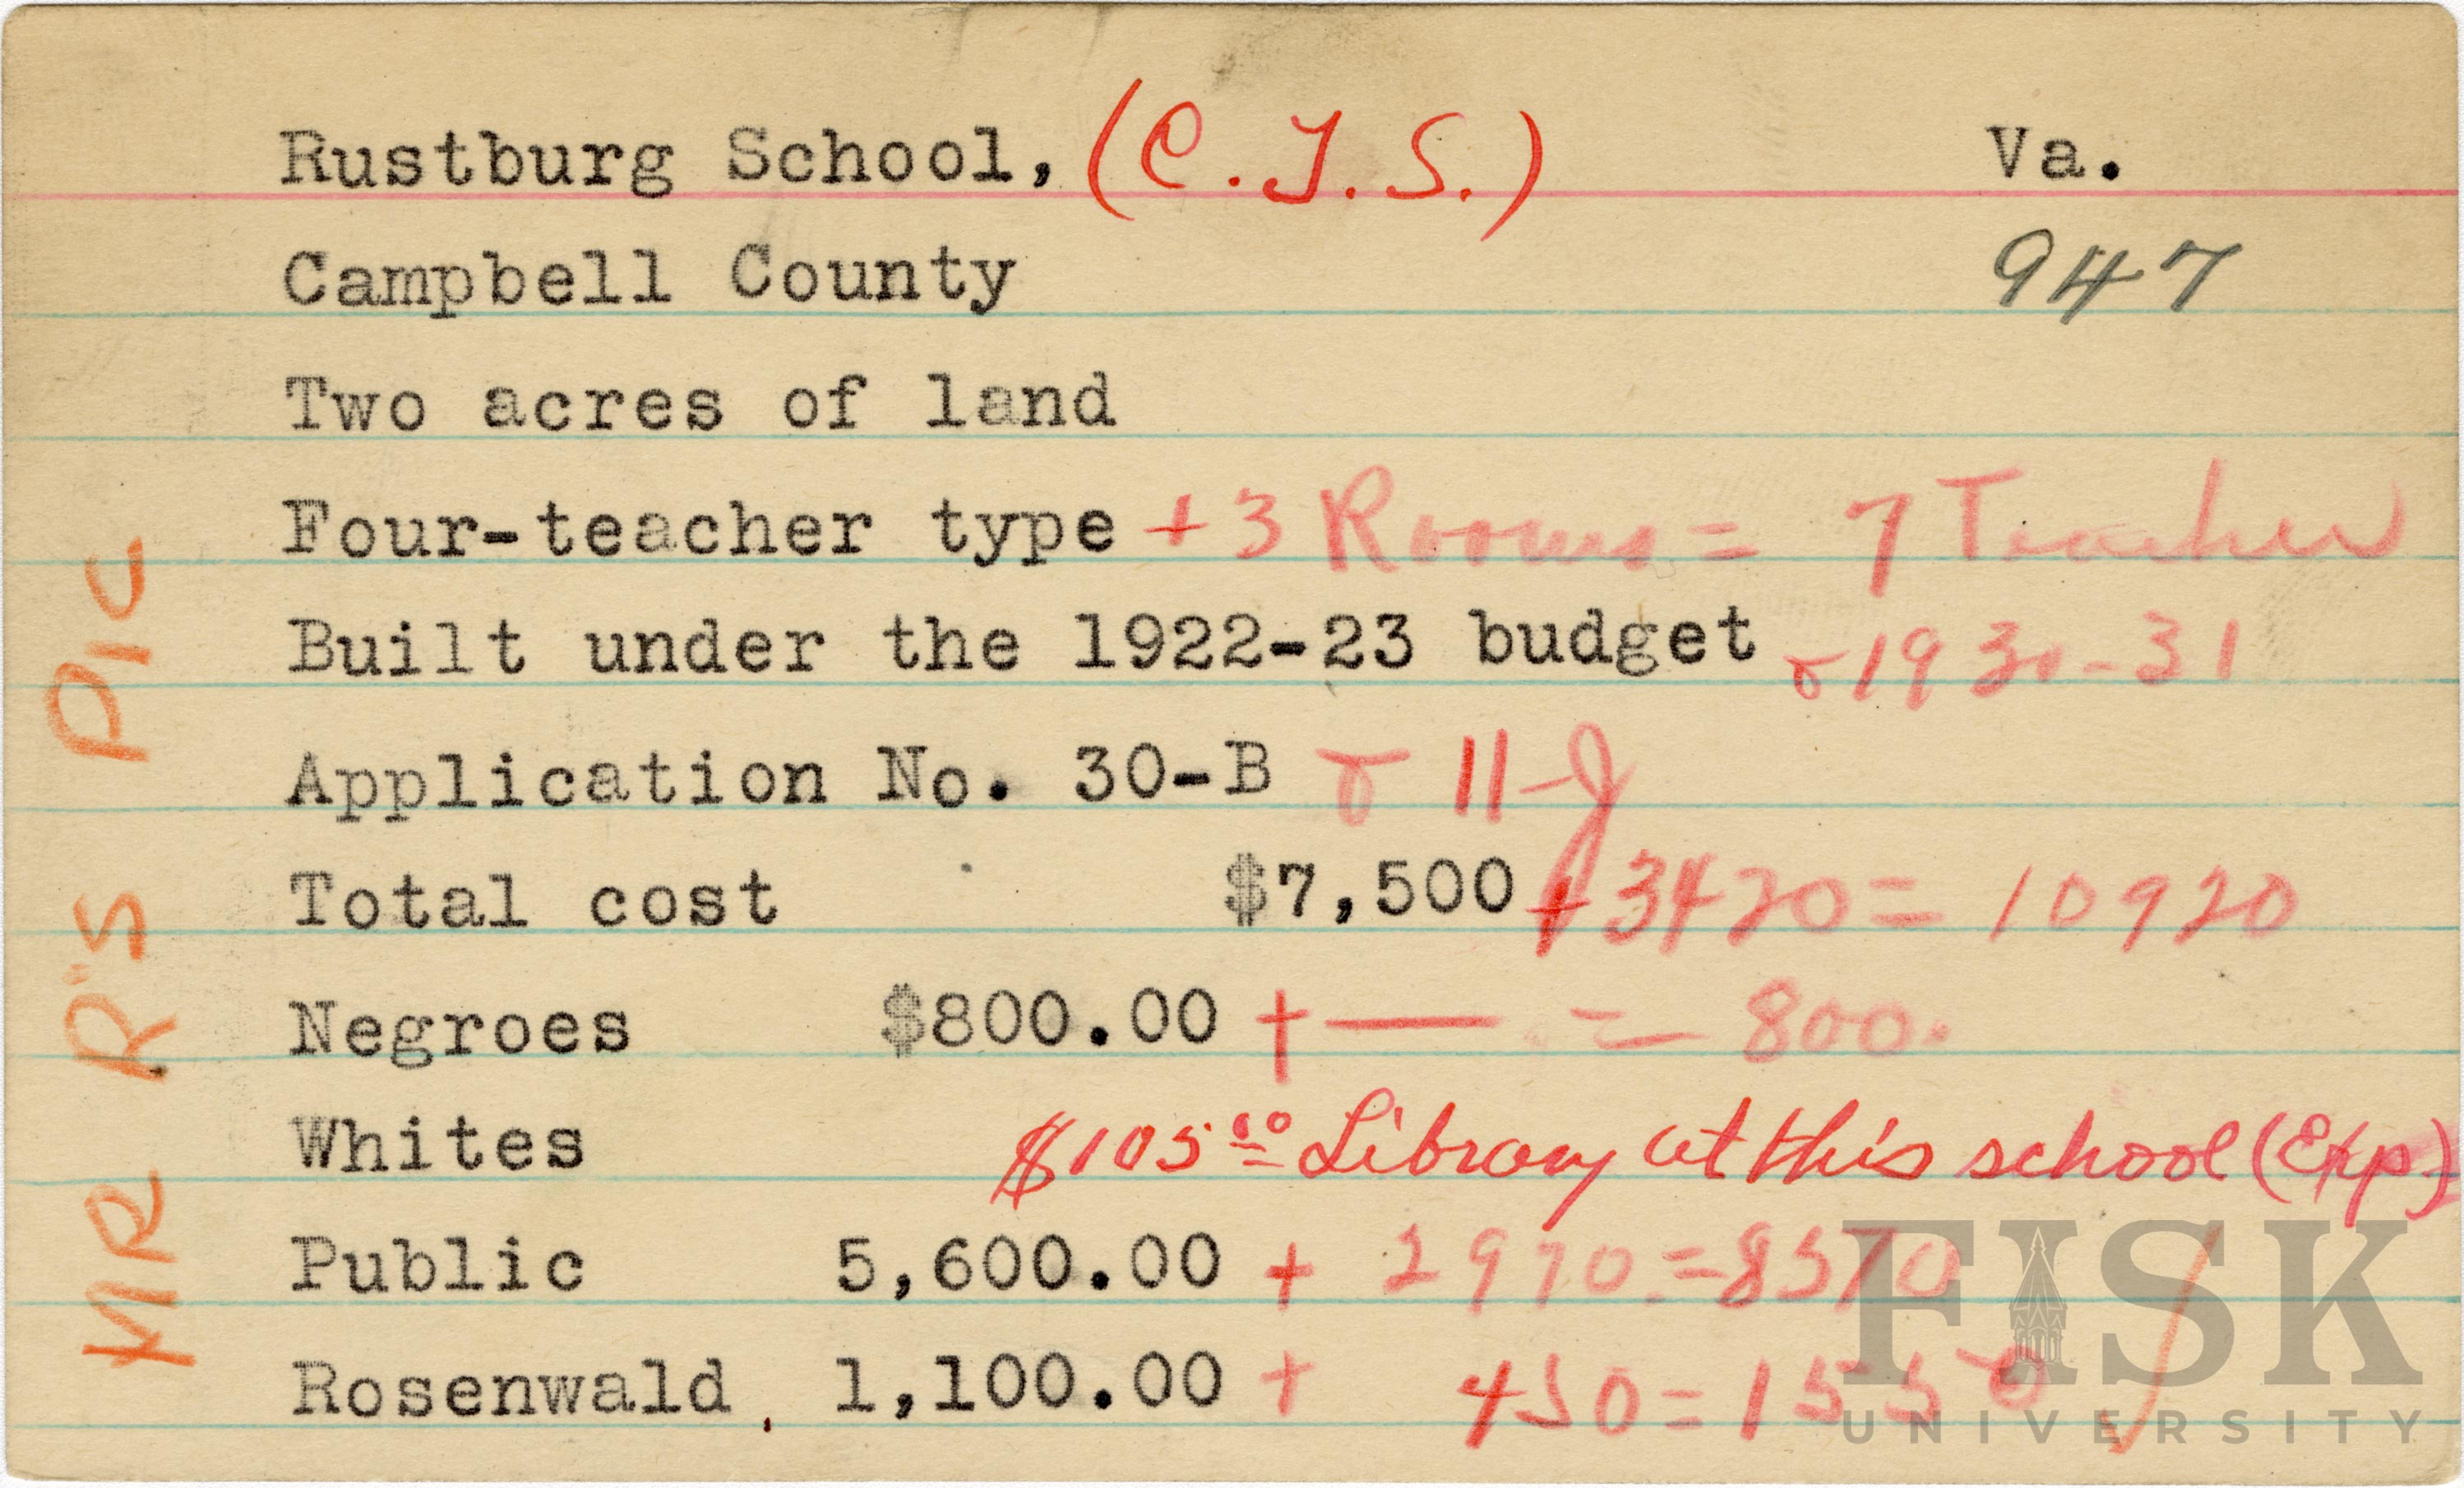 Rustburg School, (C.T.S.) Va.
Campbell County 947
Two acres of land
Four-teacher type + 3 Rooms = 7 Teacher
Built under the 1922-23 budget & 1930-31
Application No. 30-B & 11-J
Total cost $7,500 + 3420 = 10920
Negroes $800.00 + — = 800.
Whites $105.00 Library at this school (Exp)
Public 5,600.00 + 2970. = 8570
Rosenwald 1,100.00 + 450 = 1550
MR R'S PIC
FISK
UNIVERSITY